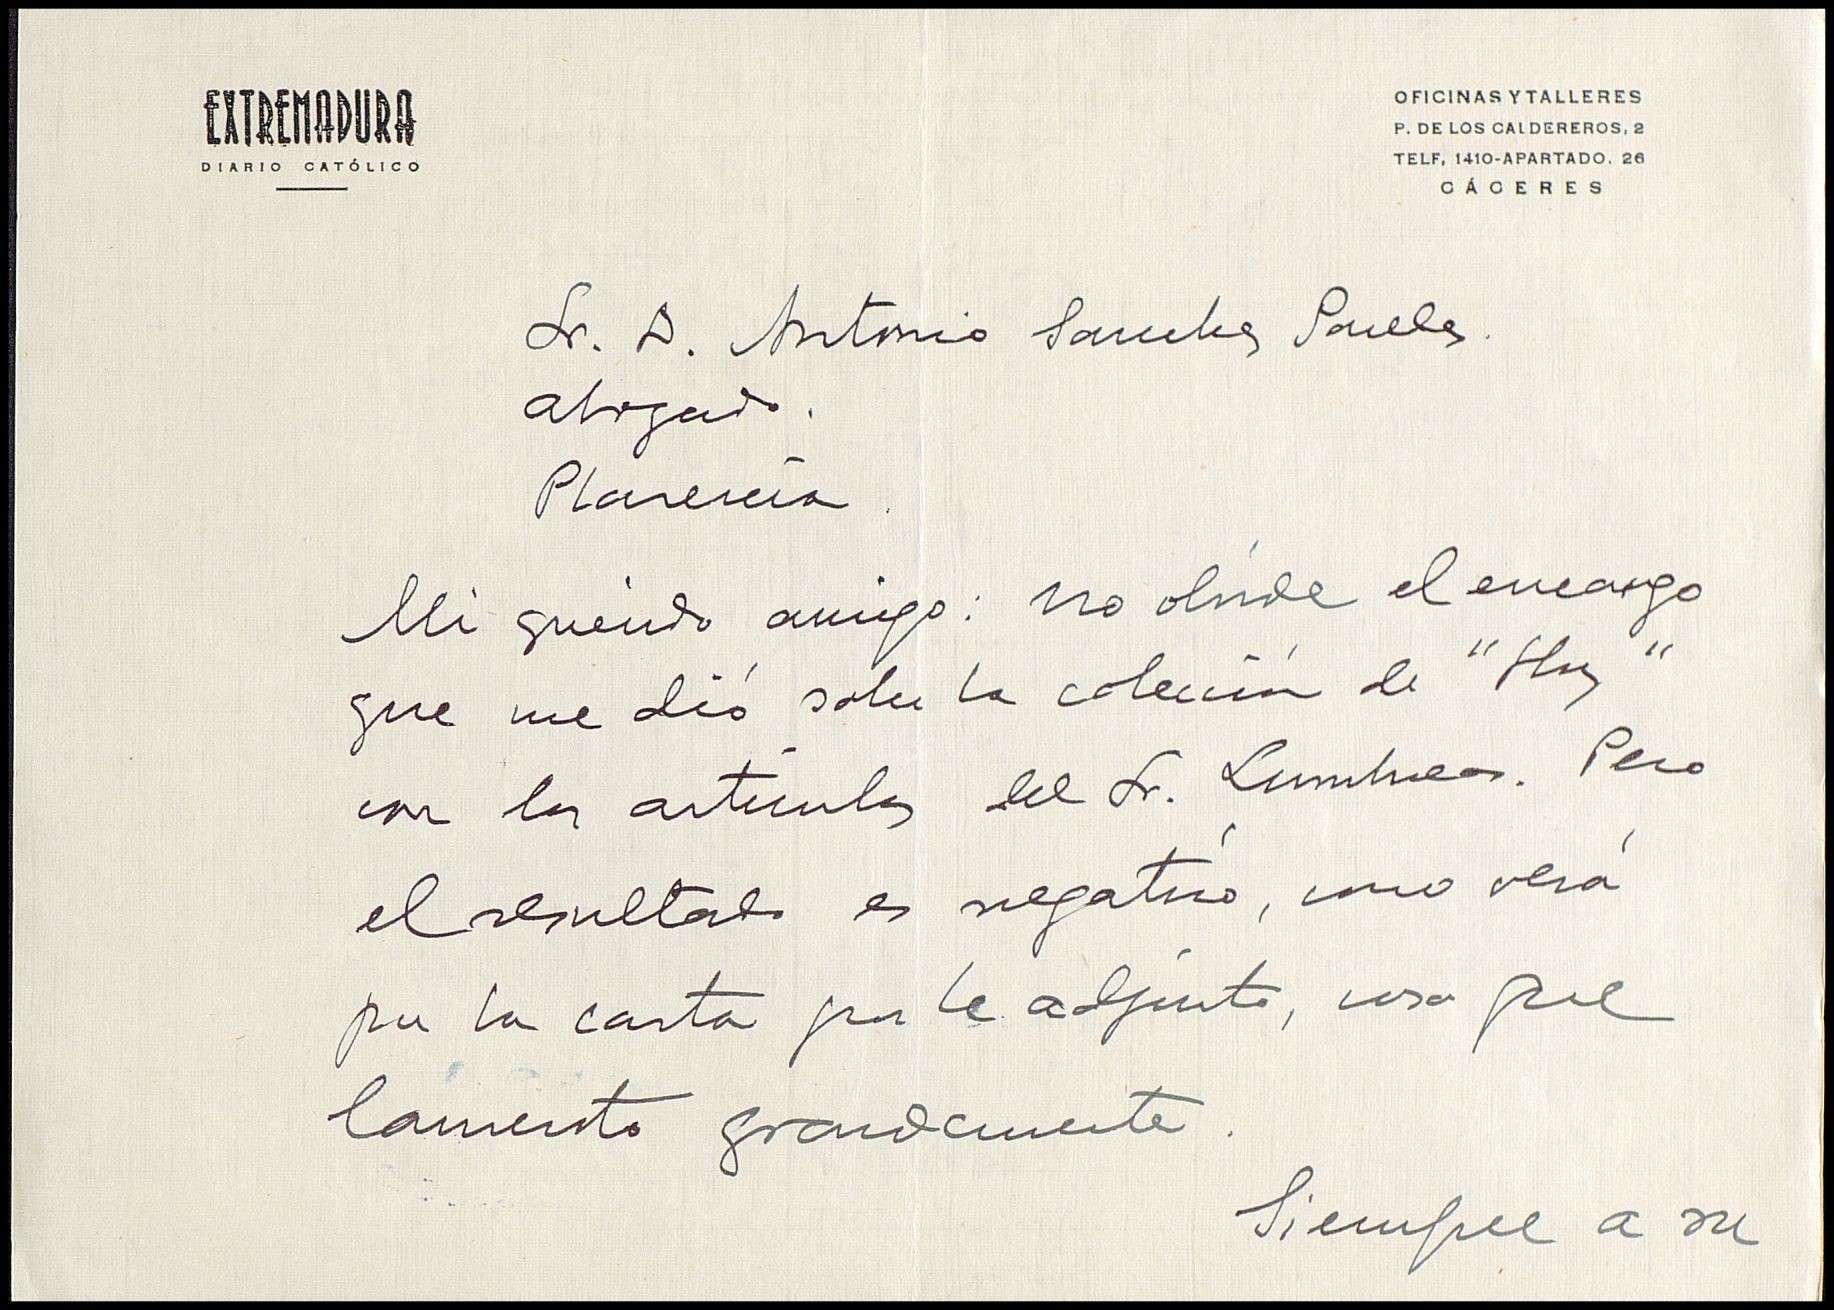 EXTREMADURA
DIARIO CATÓLICO
OFICINAS Y TALLERES
P. DE LOS CALDEREROS, 2
TELF, 1410-APARTADO. 26
CÁCERES
Sr. D. Antonio Sanches Paules.
abogado.
Plasencia.
Mi querido amigo: no olvide el encargo
que me dió sobre la colección de "Hoy"
con los articulos del Sr. Lumbreras. Pero
el resultado es negativo, como verá
por la carta que le adjunto, cosa que
lamento grandemente.
Siempre a su